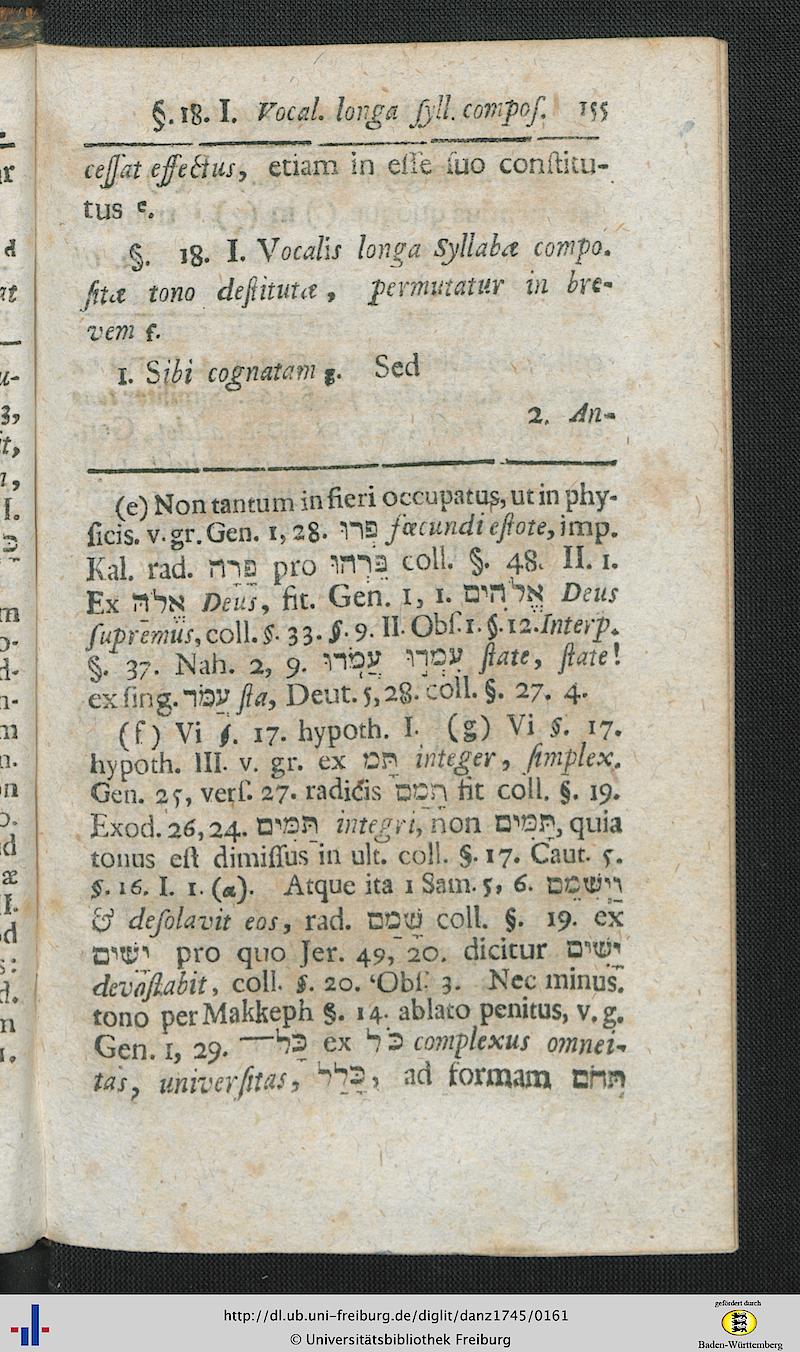 §. 18. I. Vocal. longa ſyll. compoſ. 155
ceſſat effectus, etiam in eſſe ſuo conſtitu-
tus e.
§. 18. I. Vocalis longa Syllabæ compo.
ſitæ tono deſtitutæ, permutatur in bre-
vem f.
1. Sibi cognatam g. Sed
2. An-
(e) Non tantum in fieri occupatus, ut in phy-
ſicis. v. gr. Gen. 1, 28. פרו fœcundi eſtote, imp.
Kal. rad. פרה pro פרהו coll. §. 48. II. 1.
Ex אלה Deus, fit. Gen. 1, 1. אלהים Deus
ſupremus, coll. §. 33. §. 9. II. Obſ. 1. §. 12. Interp.
§. 37. Nah. 2, 9. עמדו עמדו ſtate, ſtate!
ex ſing. עמד ſta, Deut. 5, 28. coll. §. 27. 4.
(f) Vi §. 17. hypoth. I. (g) Vi §. 17.
hypoth. III. v. gr. ex תם integer, ſimplex.
Gen. 25, verſ. 27. radicis תמם fit coll. §. 19.
Exod. 26, 24. תמים integri, non תמים, quia
tonus eſt dimiſſus in ult. coll. §. 17. Caut. 5.
§. 16. I. 1. (a). Atque ita 1 Sam. 5, 6. וישמם
& deſolavit eos, rad. שמם coll. §. 19. ex
ישים pro quo Jer. 49, 20. dicitur ישים
devaſtabit, coll. §. 20. Obſ. 3. Nec minus.
tono per Makkeph §. 14. ablato penitus, v. g.
Gen. 1, 29. כל־ ex כל complexus omnei-
tas, univerſitas, כלל, ad formam תהם